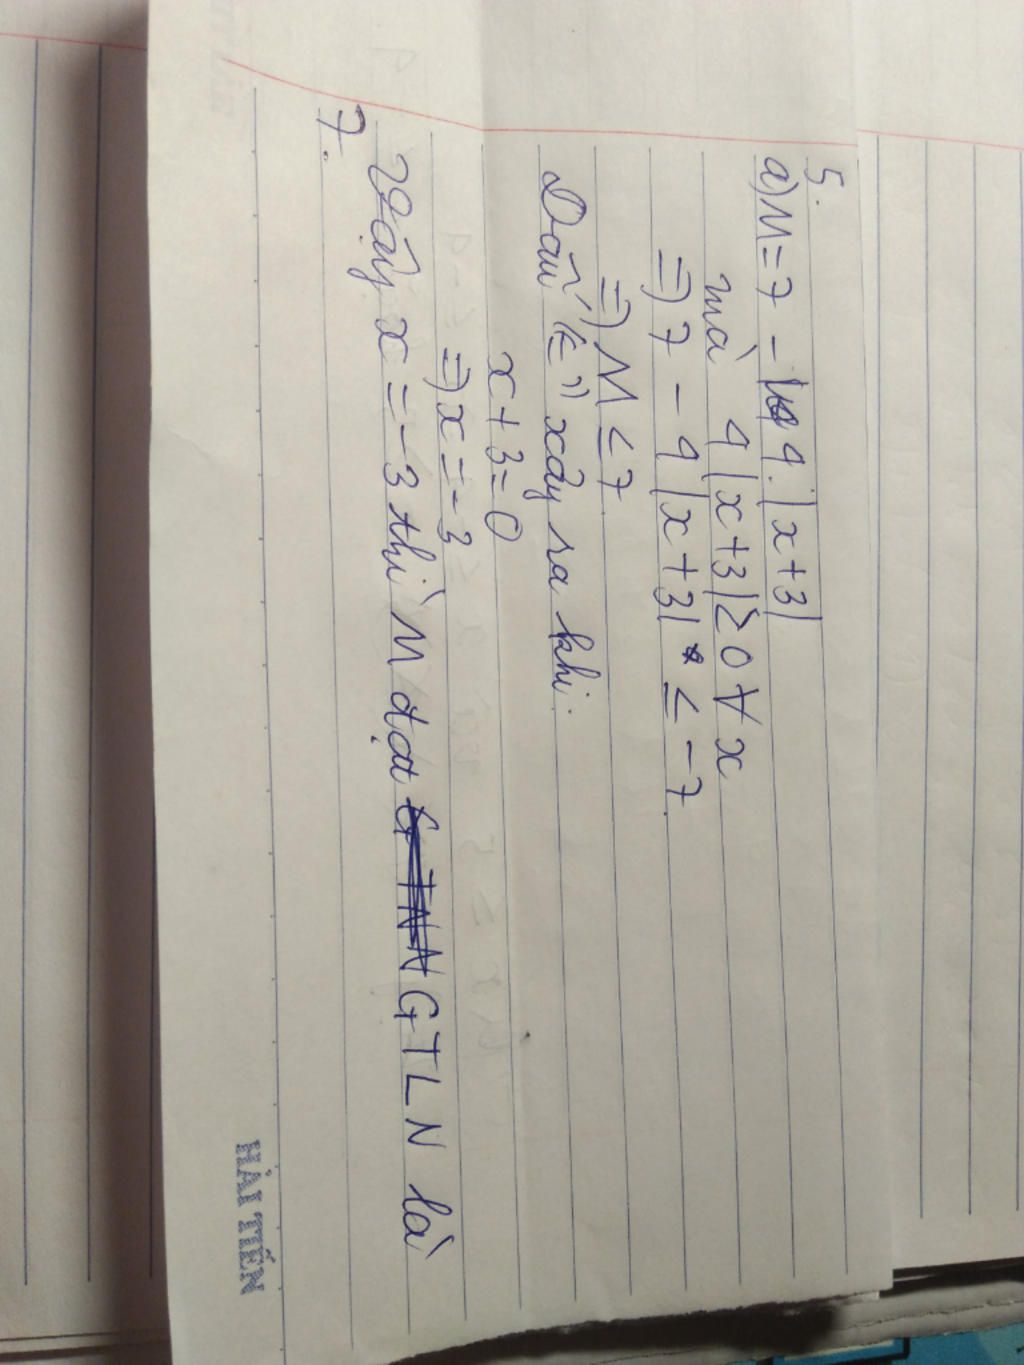 5.
a) M = 7 - 4.|x+3|
mà 4|x+3| ≥ 0 ∀ x
=) 7 - 4|x+3| ≤ -7
=) M ≤ 7
Dấu "=" xảy ra khi:
x+3=0
=) x = -3
Vậy x = -3 thì M đạt GTNN GTLN là
7.
HẢI TIẾN